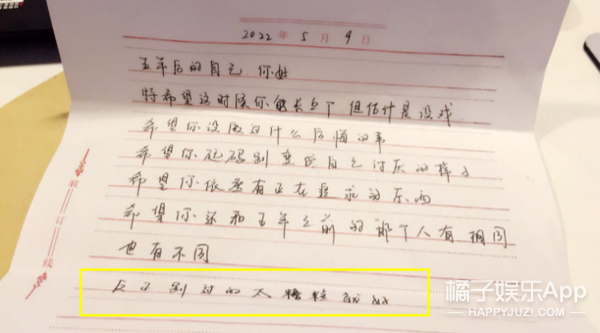 2022年5月9日
五年后的自己 你好
特希望这时候你能长点个 但估计是没戏
希望你没做过什么后悔的事
希望你起码别变成自己讨厌的样子
希望你依然有正在追求的东西
希望你还和五年之前的那个人有相同
也有不同
反正别过的太糟糕就好
装订线
橘子娱乐App
HAPPYJUZI.COM